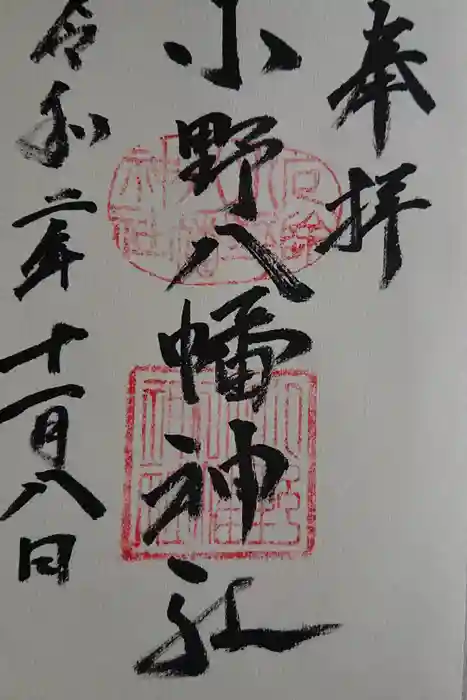 奉拝
小野八幡神社
令和二年十一月八日